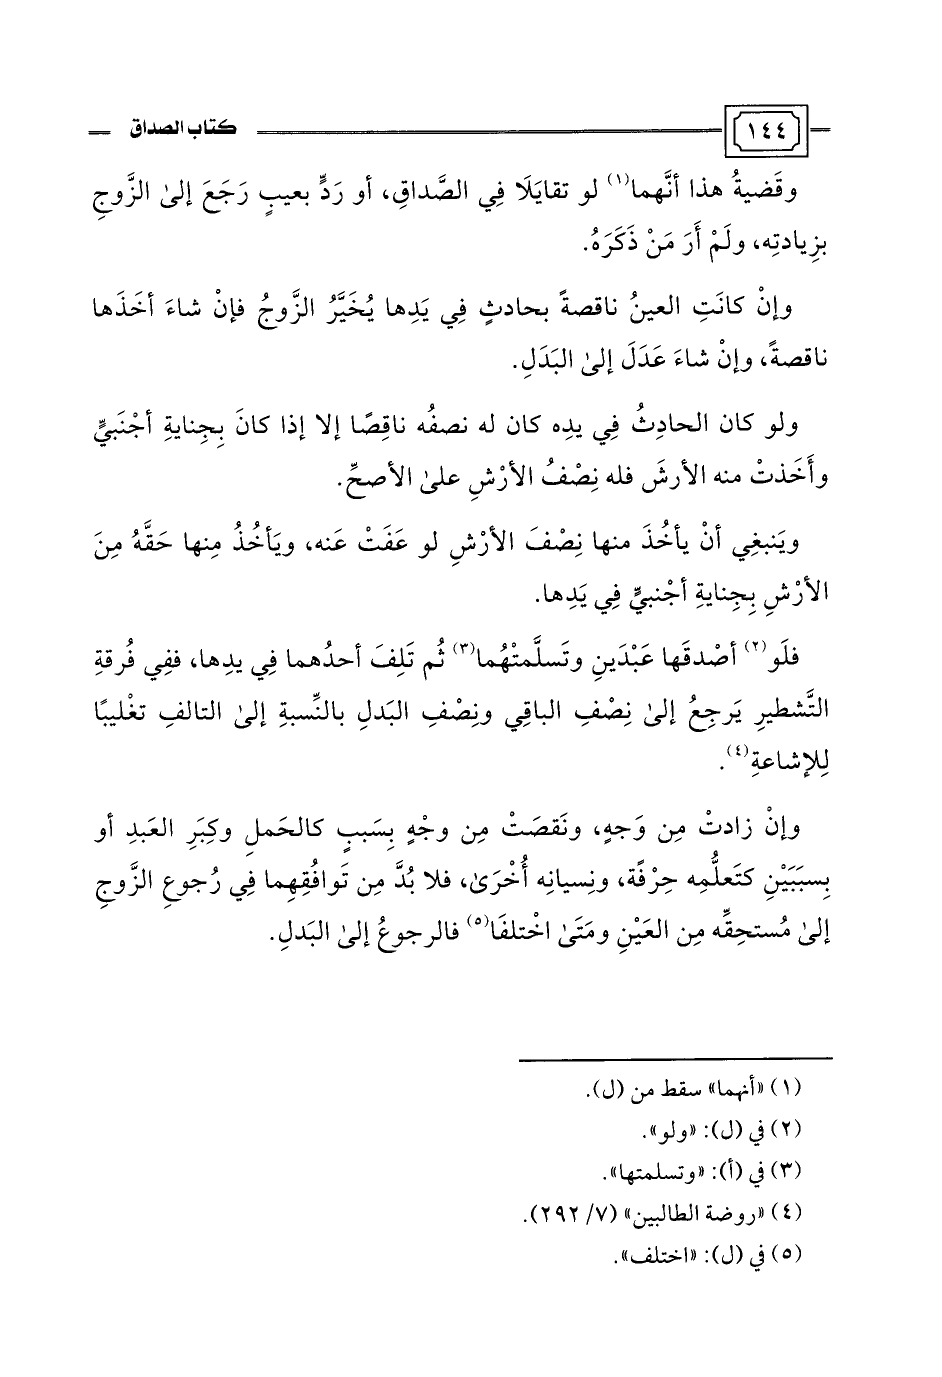 ١٤٤
كتاب الصداق
وقَضيةُ هذا أنَّهما(١) لو تقايَلَا فِي الصَّداقِ، أو رَدٍّ بعيبٍ رَجَعَ إلىٰ الزَّوجِ
بزِيادتِه، ولَمْ أَرَ مَنْ ذَكَرَهُ.
وإنْ كانَتِ العينُ ناقصةً بحادثٍ فِي يَدِها يُخَيَّرُ الزَّوجُ فإنْ شاءَ أخَذَها
ناقصةً، وإنْ شاءَ عَدَلَ إلىٰ البَدَلِ.
ولو كان الحادِثُ فِي يدِه كان له نصفُه ناقِصًا إلا إذا كانَ بِجِنايةِ أجْنَبيٍّ
وأَخَذتْ منه الأرشَ فله نِصْفُ الأرْشِ علىٰ الأصحِّ.
ويَنبغِي أنْ يأخُذَ منها نِصْفَ الأرْشِ لو عَفَتْ عَنه، ويَأخُذُ مِنها حَقَّهُ مِنَ
الأرْشِ بِجِنايةِ أجْنبيٍّ فِي يَدِها.
فلَو(٢) أصْدقَها عَبْدَينِ وتَسلَّمتْهُما(٣) ثُم تَلِفَ أحدُهما فِي يدِها، ففِي فُرقةِ
التَّشطيرِ يَرجِعُ إلىٰ نِصْفِ الباقِي ونِصْفِ البَدلِ بالنِّسبةِ إلىٰ التالفِ تغْليبًا
لِلإشاعةِ(٤).
وإنْ زادتْ مِن وَجهٍ، ونَقصَتْ مِن وجْهٍ بِسَببٍ كالحَملِ وكِبَرِ العَبدِ أو
بِسبَبَيْنِ كتَعلُّمِه حِرْفَة، ونِسيانِه أُخْرَىٰ، فلا بُدَّ مِن تَوافُقِهِما فِي رُجوعِ الزَّوجِ
إلىٰ مُستحِقِّه مِن العَيْنِ ومَتَىٰ اخْتلفَا(٥) فالرجوعُ إلىٰ البَدلِ.
(١) «أنهما» سقط من (ل).
(٢) في (ل): «ولو».
(٣) في (أ): «وتسلمتها».
(٤) «روضة الطالبين» (٧/ ٢٩٢).
(٥) في (ل): «اختلف».